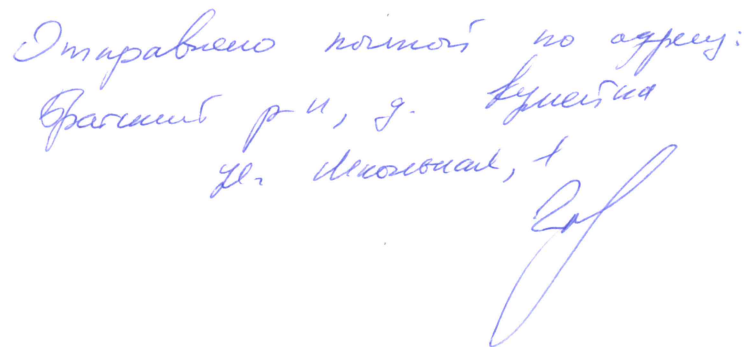 Отправлено почтой по адресу:
Братский р-н, д. Кумейка
ул. Школьная, 1